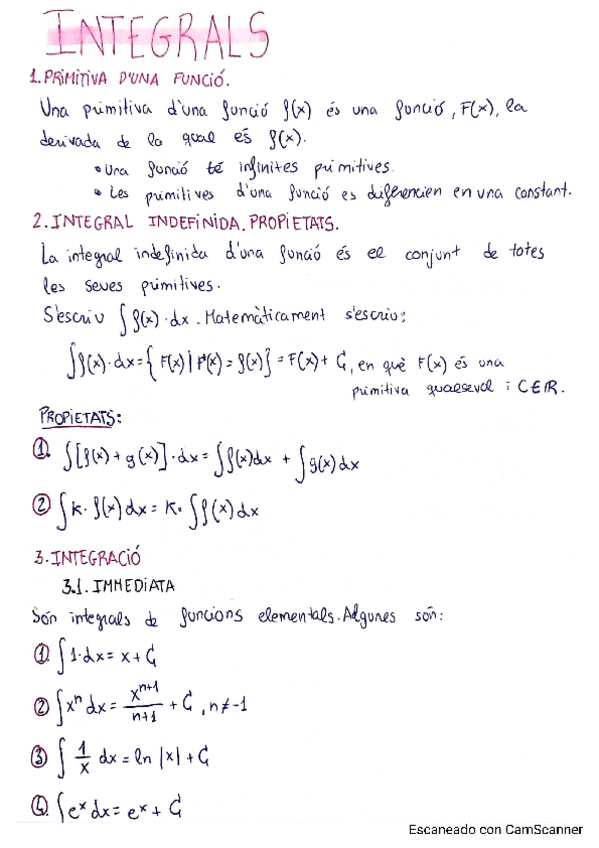 INTEGRALS
1. PRIMITIVA D'UNA FUNCIÓ.
Una primitiva d'una funció f(x) és una funció, F(x), la
derivada de la qual és f(x).
• Una funció té infinites primitives.
• Les primitives d'una funció es diferencien en una constant.
2. INTEGRAL INDEFINIDA. PROPIETATS.
La integral indefinida d'una funció és el conjunt de totes
les seves primitives.
S'escriu ∫f(x)·dx. Matemàticament s'escriu:
∫f(x)·dx = { F(x) | F'(x) = f(x)} = F(x) + C, en què F(x) és una
primitiva qualsevol i C∈ℝ.
PROPIETATS:
1. ∫[f(x) + g(x)]·dx = ∫f(x)dx + ∫g(x)dx
2 ∫K·f(x)dx = K·∫f(x)dx
3. INTEGRACIÓ
3.1. IMMEDIATA
Són integrals de funcions elementals. Algunes són:
1. ∫1·dx = x + C
2 ∫xⁿ dx = xⁿ⁺¹/n+1 + C, n≠-1
3 ∫ 1/x dx = ln |x| + C
4. ∫eˣ dx = eˣ + C
Escaneado con CamScanner